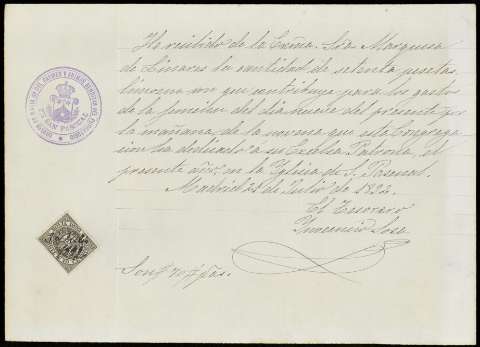 He recibido de la Exma. Sra Marquesa
de Linares la cantidad de setenta pesetas,
limosna con que contribuye para los gastos
de la funcion del dia nueve del presente por
la mañana, de la novena que esta Congrega-
cion ha dedicado a su Excelsa Patrona, el
presente año, en la Yglesia de S. Pascual.
Madrid 21 de Julio de 1892.
El Tesorero
Inocencio Sose
Son # 70 # ptas.
SAN PASCUAL